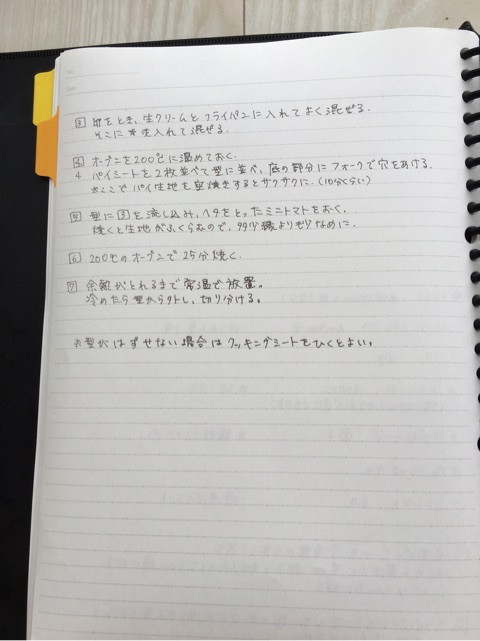 ③ 卵をとき、生クリームとフライパンに入れてよく混ぜる。
そこに★を入れて混ぜる。
④ オーブンを200℃に温めておく。
4 パイシートを2枚並べて型に並べ、底の部分にフォークで穴をあける。
※ここでパイ生地を空焼きするとサクサクに。(10分くらい)
⑤ 型に③を流し込み、ヘタをとったミニトマトをおく。
焼くと生地がふくらむので、少し縁より少なめに。
⑥ 200℃のオーブンで25分焼く。
⑦ 余熱がとれるまで常温で放置。
冷めたら型から外し、切り分ける。
※型がはずせない場合はクッキングシートをひくとよい。